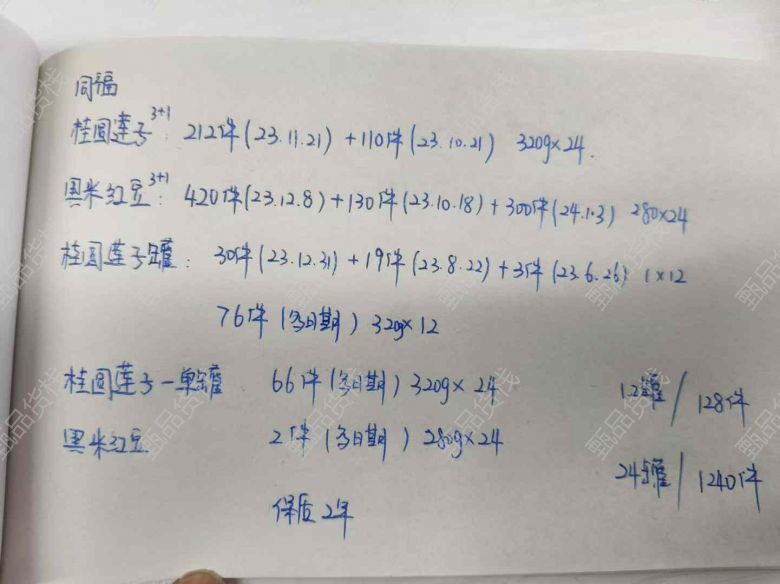 同福
桂圆莲子3+1: 212件(23.11.21)+110件(23.10.21) 320g×24.
黑米红豆3+1: 420件(23.12.8)+130件(23.10.18)+300件(24.1.3) 280×24
桂圆莲子罐: 30件(23.12.31)+19件(23.8.22)+3件(23.6.26) 1×12
76件(多日期) 320g×12
桂圆莲子一单罐 66件(多日期) 320g×24
12罐/128件
黑米红豆 2件(多日期) 280g×24
24罐/1240件
保质2年
甄品货栈